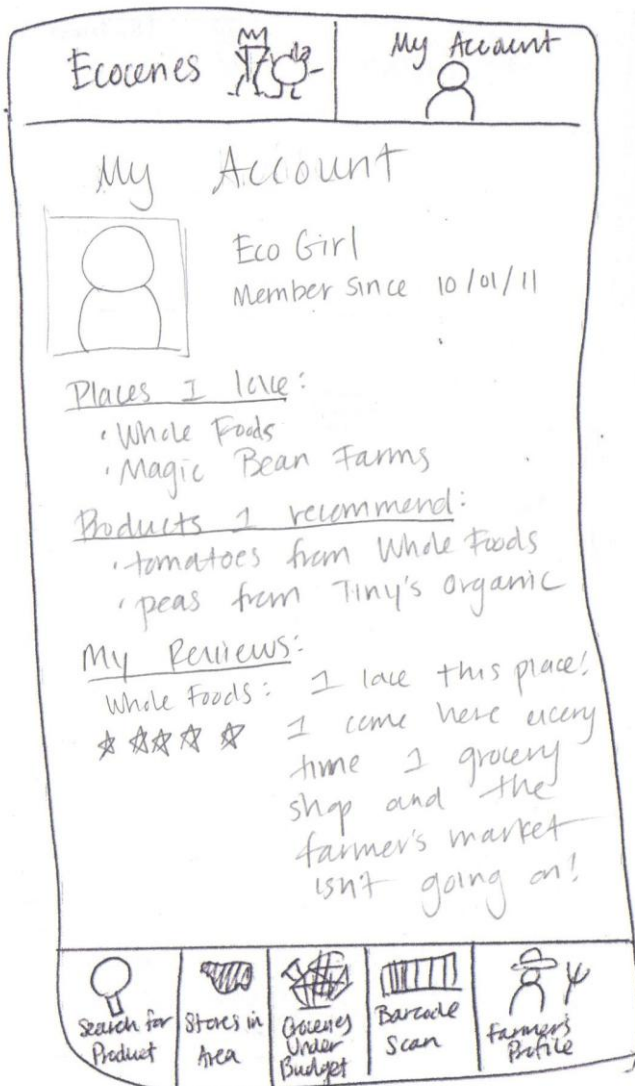 Ecoceries
My Account
My Account
Eco Girl
Member since 10/01/11
Places I love:
• Whole Foods
• Magic Bean Farms
Products I recommend:
• tomatoes from Whole Foods
• peas from Tiny's Organic
My Reviews:
Whole Foods:
I love this place!
I come here every
time I grocery
shop and the
farmer's market
isn't going on!
Search for
Product
Stores in
Area
Groceries
Under
Budget
Barcode
Scan
Farmer's
Profile